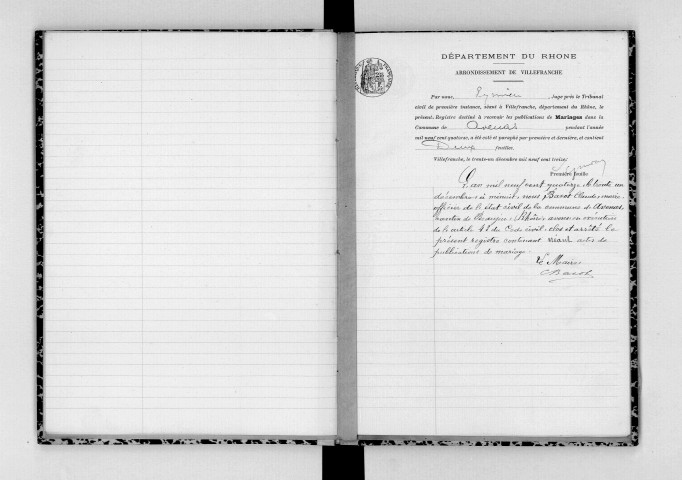 DÉPARTEMENT DU RHONE
ARRONDISSEMENT DE VILLEFRANCHE
Par nous, Eymin, Juge près le Tribunal
civil de première instance, séant à Villefranche, département du Rhône, le
présent Registre destiné à recevoir les publications de Mariages dans la
Commune de Avenas pendant l'année
mil neuf cent quatorze, a été coté et paraphé par première et dernière, et contient
Deux feuilles.
Villefranche, le trente-un décembre mil neuf cent treize.
Première feuille
L'an mil neuf cent quatorze le trente un
décembre à minuit, nous Barot Claude maire
officier de l'état civil de la commune d'Avenas
canton de Beaujeu (Rhône) avons en exécution
de l'article 42 du Code civil clos et arrêté le
présent registre contenant neant actes de
publications de mariage.
Le Maire
Barot